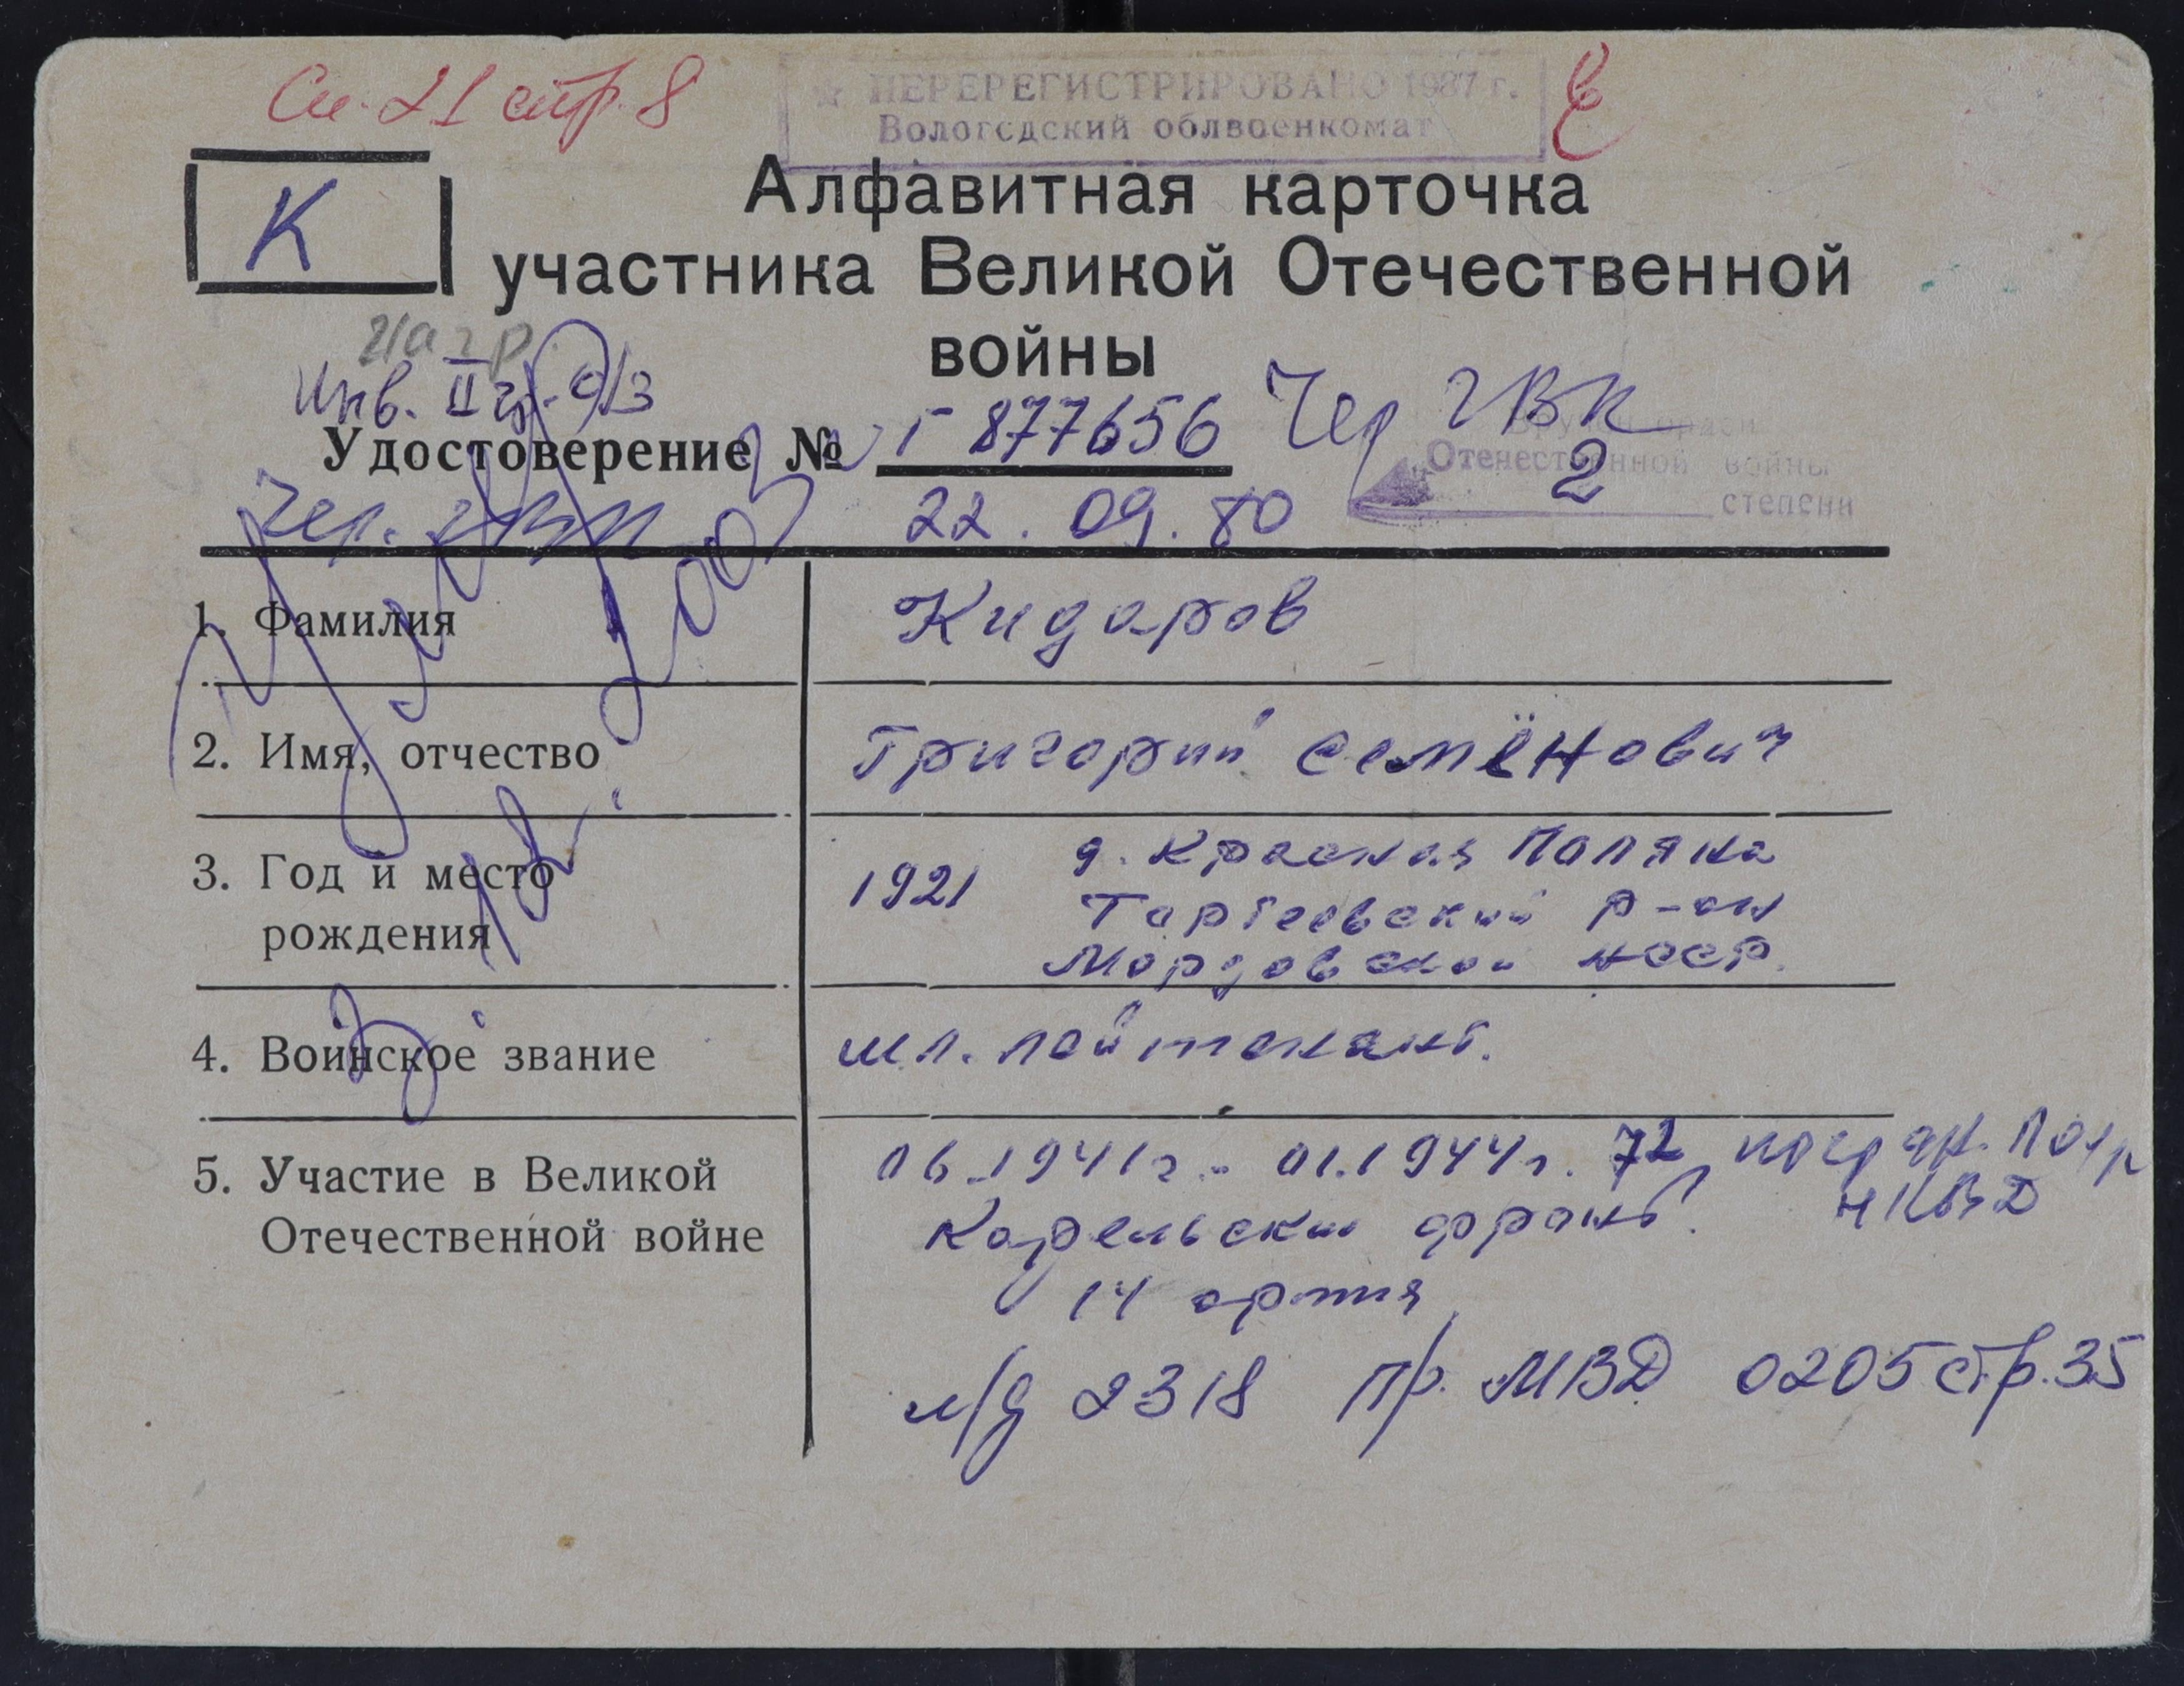 Сп. 21 стр. 8
ПЕРЕРЕГИСТРИРОВАНО 1987 г.
Вологодский облвоенкомат
К
Алфавитная карточка
участника Великой Отечественной
войны
Инв. II гр. о/з
Чер ГВК
Удостоверение № Г 877656
Вручен орден
Отечественной войны
2 степени
Чер. ГВК 22.09.80
1. Фамилия Кидаров
2. Имя, отчество Григорий Семёнович
3. Год и место рождения 1921 д. Красная Поляна
р-он
Мордовской АССР.
4. Воинское звание мл. лейтенант.
5. Участие в Великой Отечественной войне 06.1941г.- 01.1944г. 72 погран. НКВД
Карельский фронт.
14 армия
л/д 2318 Пр. МВД 0205 стр. 35